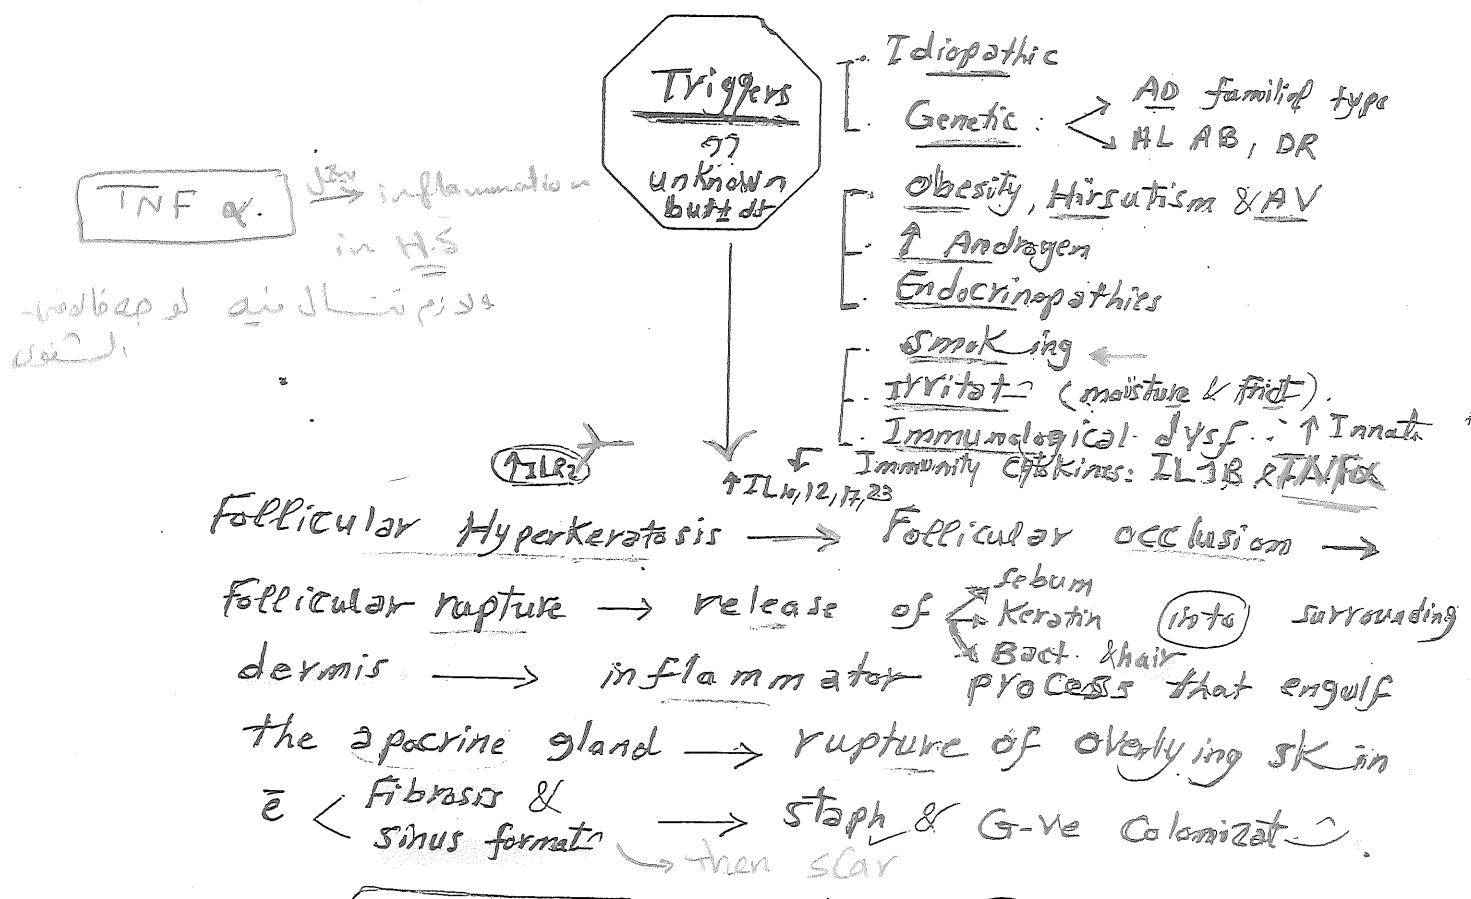 Triggers
??
unknown
but ± dt
Idiopathic
Genetic : AD familial type
HL AB, DR
Obesity, Hirsutism & AV
↑ Androgen
Endocrinopathies
Smoking ←
Irritat (moisture & frict).
Immunological dysf. : ↑ Innate
Immunity Cytokines: IL1B & TNFα
↑IL10,12,17,23
TNF α. → inflammation
in H.S
↑ILR2
Follicular Hyperkeratosis → Follicular occlusion →
Follicular rupture → release of sebum
Keratin
Bact. & hair
into surrounding
dermis → inflammator process that engulf
the apocrine gland → rupture of overlying skin
ē < Fibrosis &
sinus format → staph & G-ve Colonizat.
→ then scar